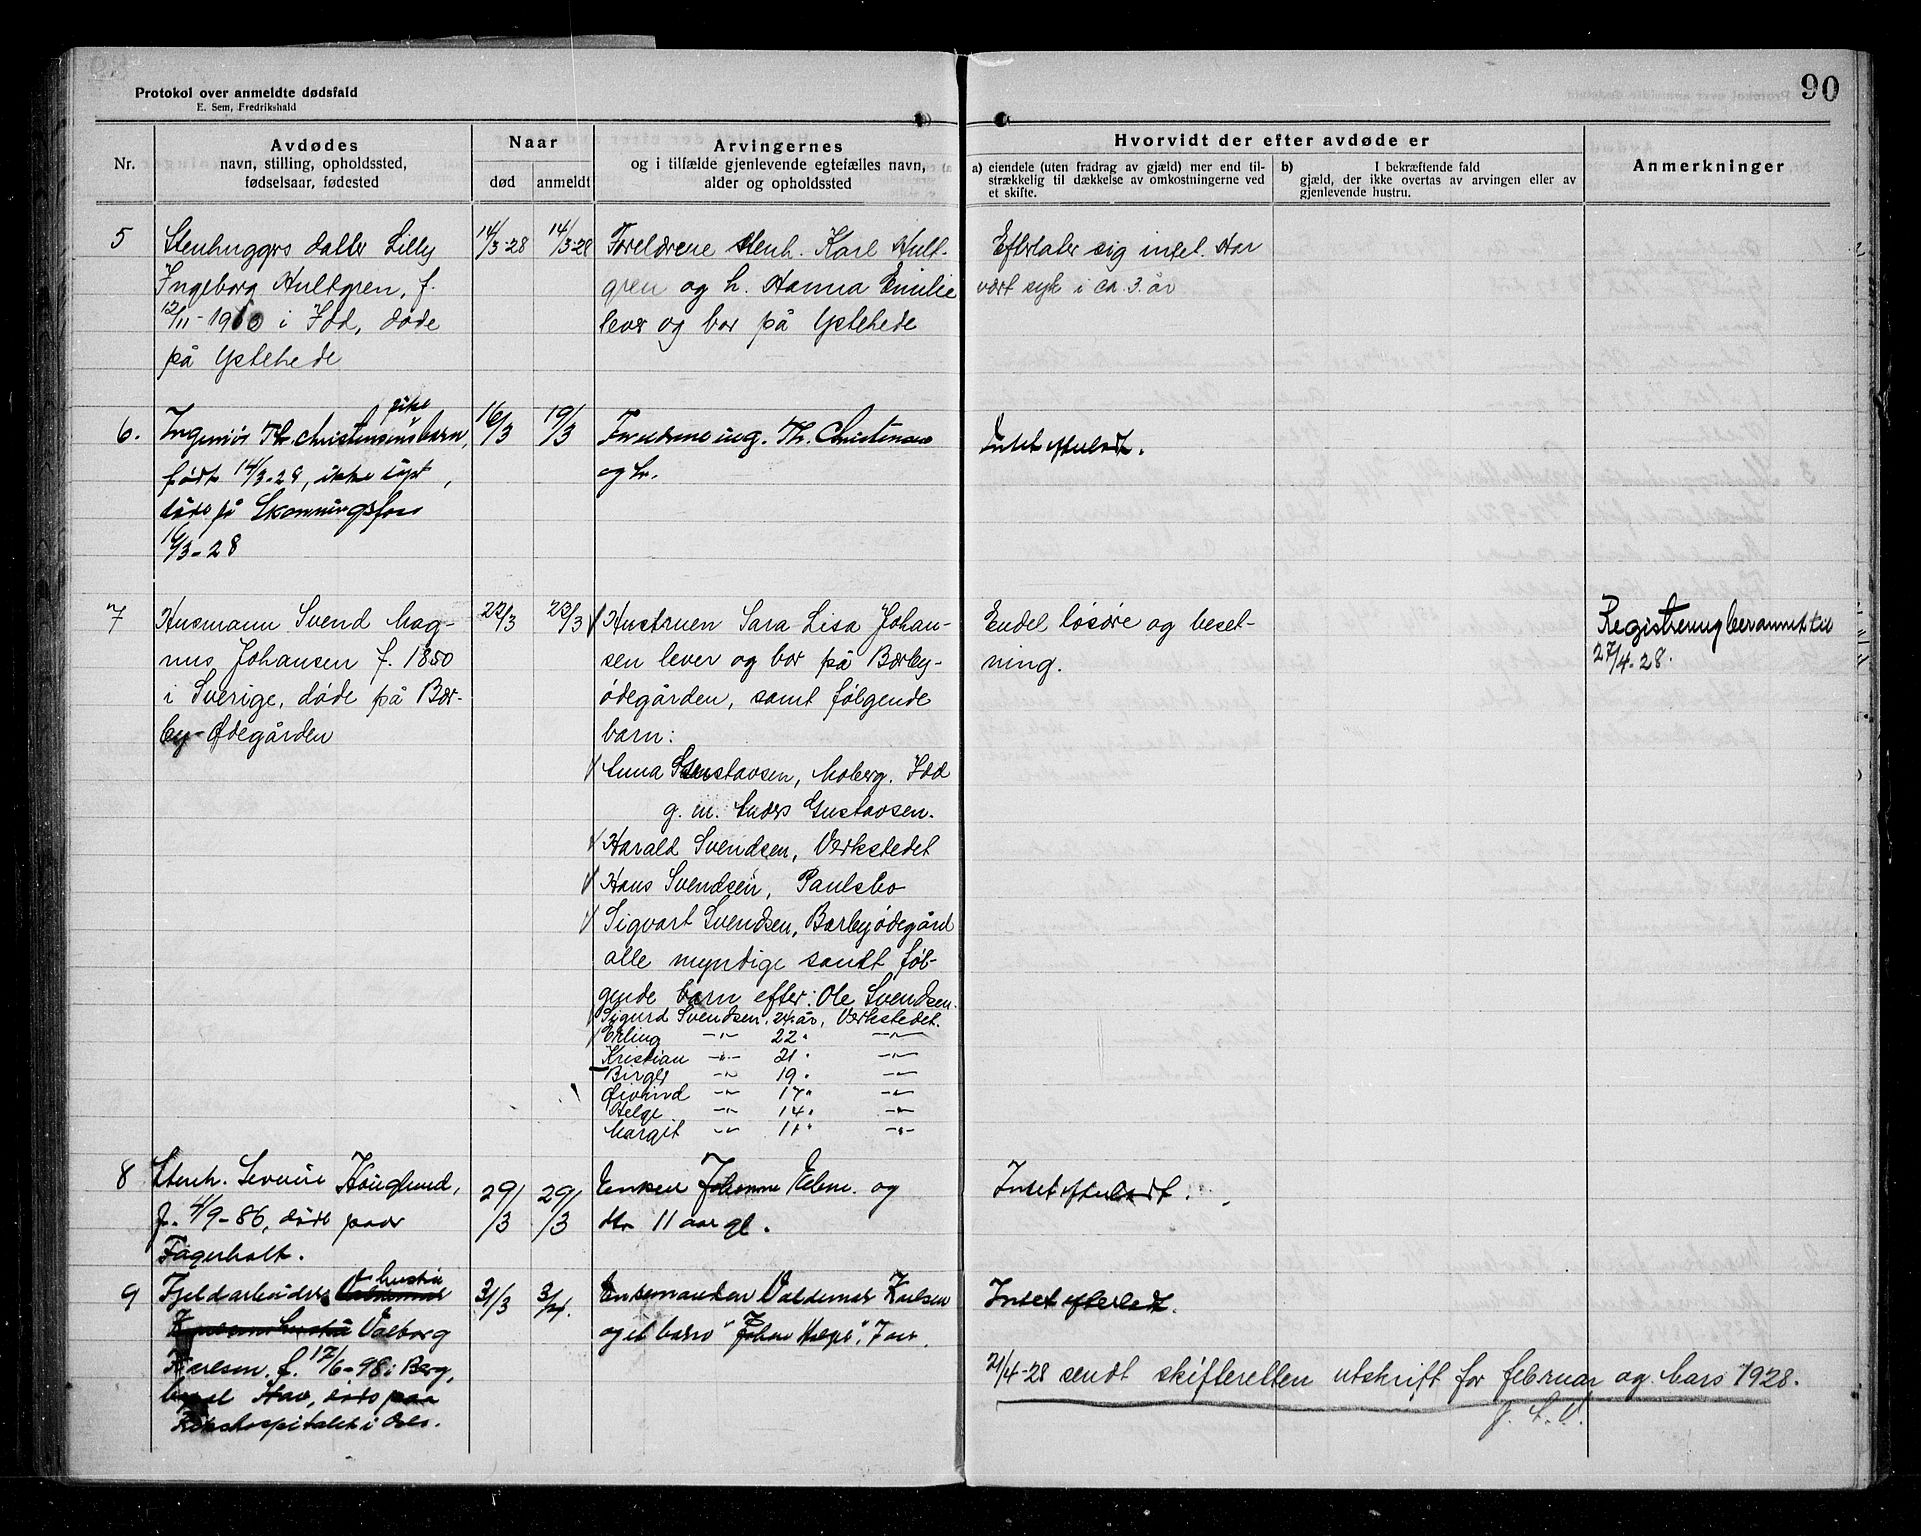 Protokol over anmeldte dødsfald
E. Sem, Fredrikshald
90
Nr.
Avdødes
navn, stilling, opholdssted,
fødselsaar, fødested
Naar
død
anmeldt
Arvingernes
og i tilfælde gjenlevende egtefælles navn,
alder og opholdssted
Hvorvidt der efter avdøde er
a) eiendele (uten fradrag av gjæld) mer end til-
strækkelig til dækkelse av omkostningerne ved
et skifte.
b) I bekræftende fald
gjæld, der ikke overtas av arvingen eller av
gjenlevende hustru.
Anmerkninger
5
Stenhuggers datter Lilly
Ingeborg Hultgren, f.
12/11-1910 i Idd, døde
på Ystehede
14/3-28
14/3-28
Foreldrene stenh. Karl Hult-
gren og h. Hanna Emilie
lever og bor på Ystehede
Efterlater sig intet. Har
vært syk i ca. 3. år
6.
pike
Ingeniør Th. Christensens barn,
født 14/3-28, ikke døpt,
døde på Skonningsfoss
16/3-28
16/3
19/3
Foreldrene ing. Th. Christensen
og hr.
Intet efterladt.
7
Husmann Svend Mag-
nus Johansen f. 1850
i Sverige, døde på Bær-
by-Ødegården
22/3
23/3
Hustruen Sara Lisa Johan-
sen lever og bor på Bærby-
ødegården, samt følgende
barn:
Anna Gustavsen, Moberg. Idd
g. m. Anders Gustavsen.
Harald Svendsen, Verkstedet
Hans Svendsen, Paulsbo
Sigvart Svendsen, Bærbyødegård
alle myndige samt føl-
gende barn efter: Ole Svendsen.
Sigurd Svendsen, 24 år, Verkstedet.
Erling -"- 22 " -"-
Kristian -"- 21 " -"-
Birger -"- 19 " -"-
Øivind -"- 17 " -"-
Helge -"- 14 " -"-
Margit -"- 11 " -"-
Endel løsøre og beset-
ning.
Registrering berammet til
27/4-28.
8
Stenh. Severin Høuglund,
f. 4/9-86, døde paa
Fagerholt.
29/3
29/3
Enken Johanne Elene og
dtr 11 aar gl.
Intet efterladt.
9
hustru
Fjeldarbeiders
Valborg
Karlsen, f. 17/6-98 i Berg,
døde paa
Rikshospitalet i Oslo.
31/3
3/4.
Enkemanden Valdemar Karlsen
og et barn "Johan Helge", 7 aar
Intet efterladt.
2/4-28 sendt skifteretten utskrift for februar og Mars 1928.